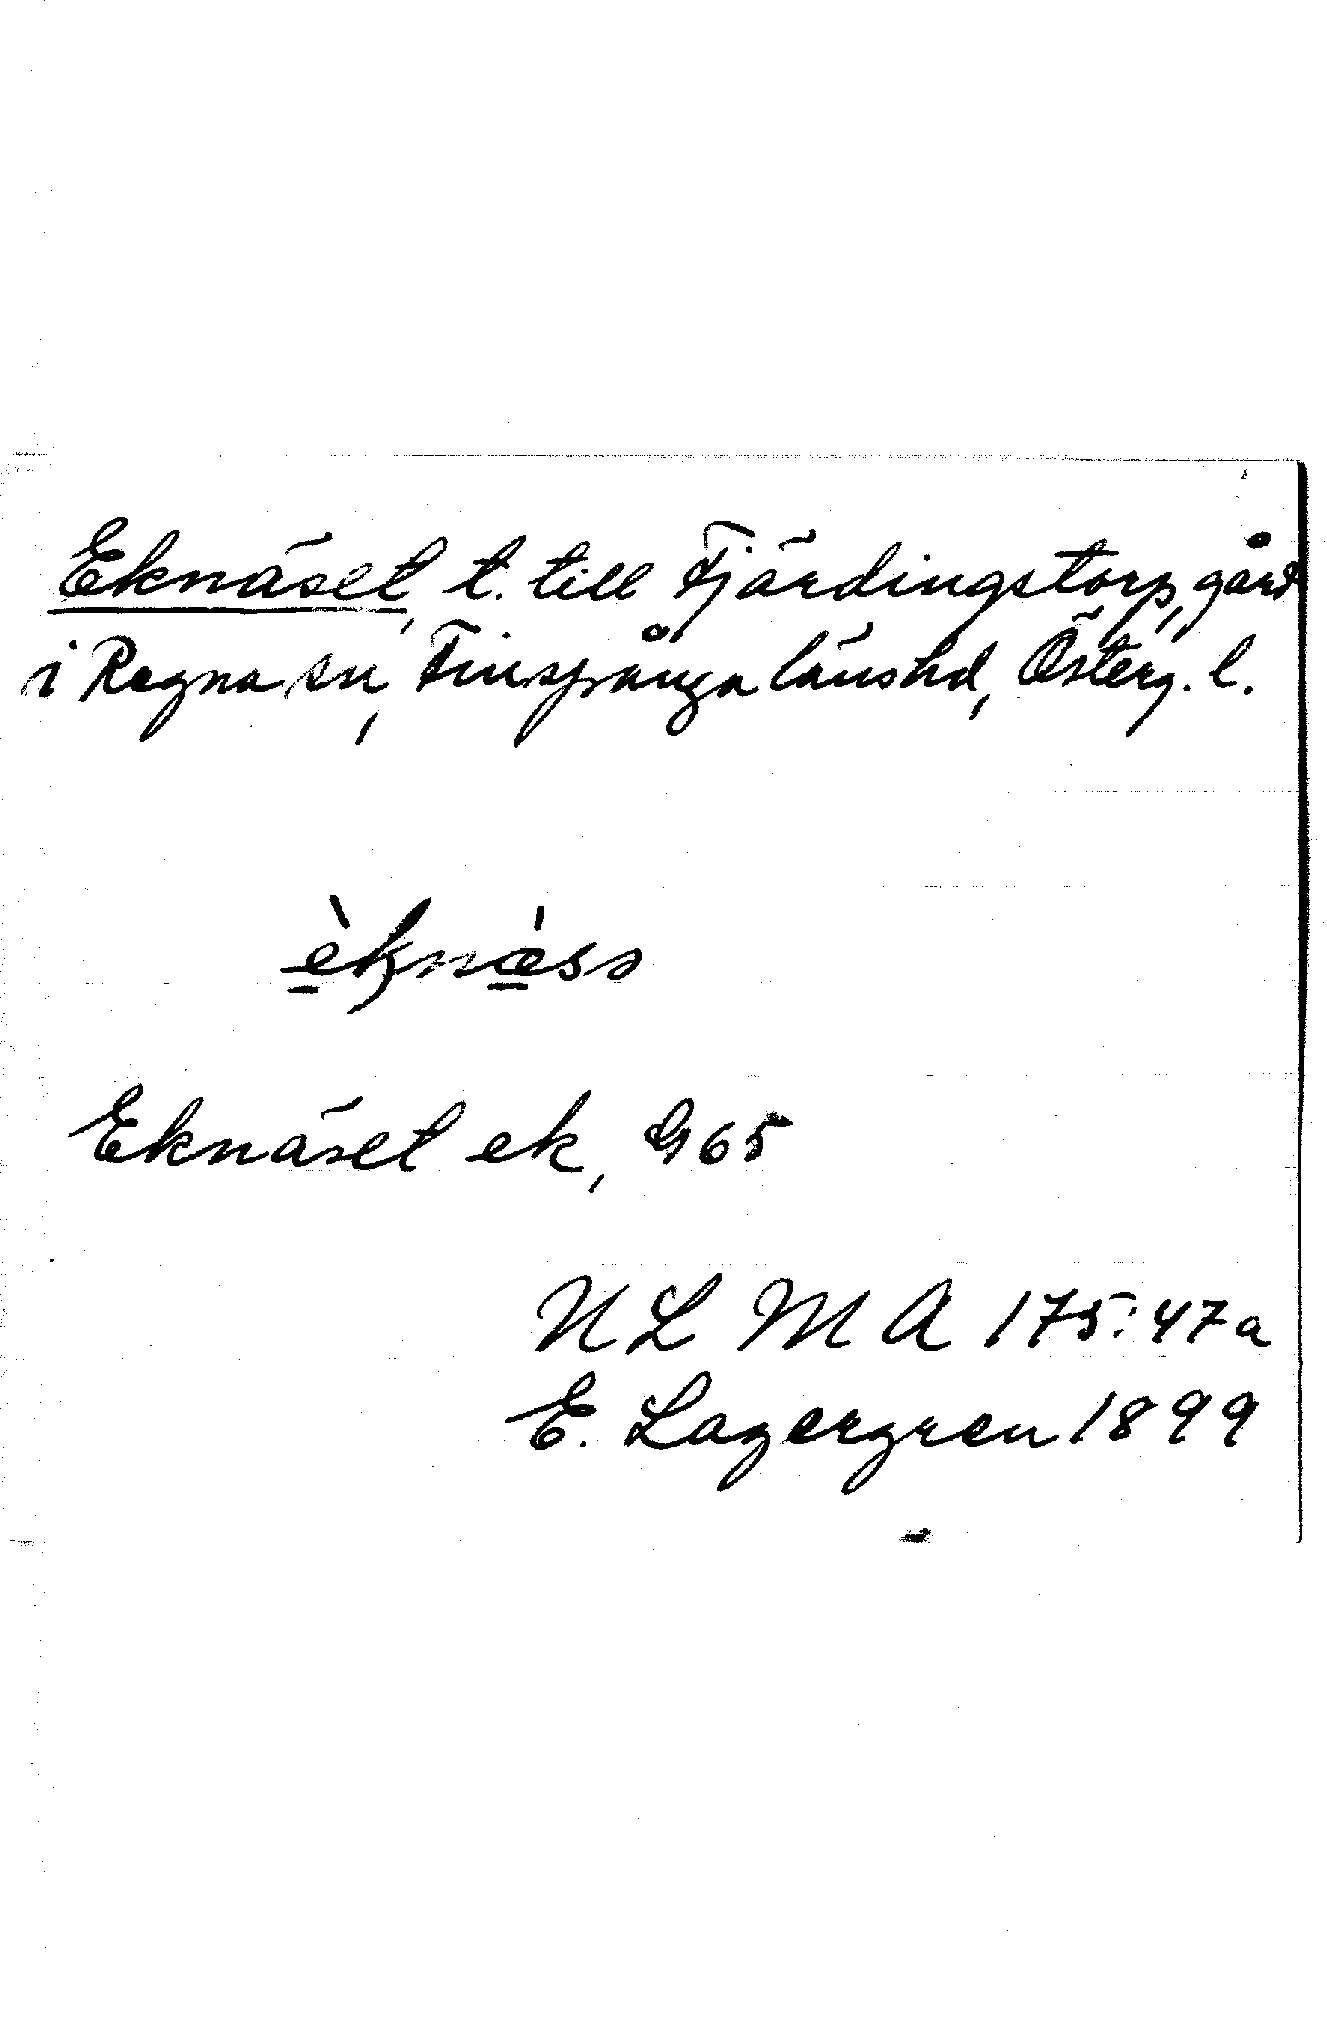 Eknäset, t. till Fjärdingstorp, gård
i Regna sn, Finspånga länshd, Österg. l.
èknæ̀ss
Eknäset ek, G65
NLMA 175:47a
E. Lagergren 1899